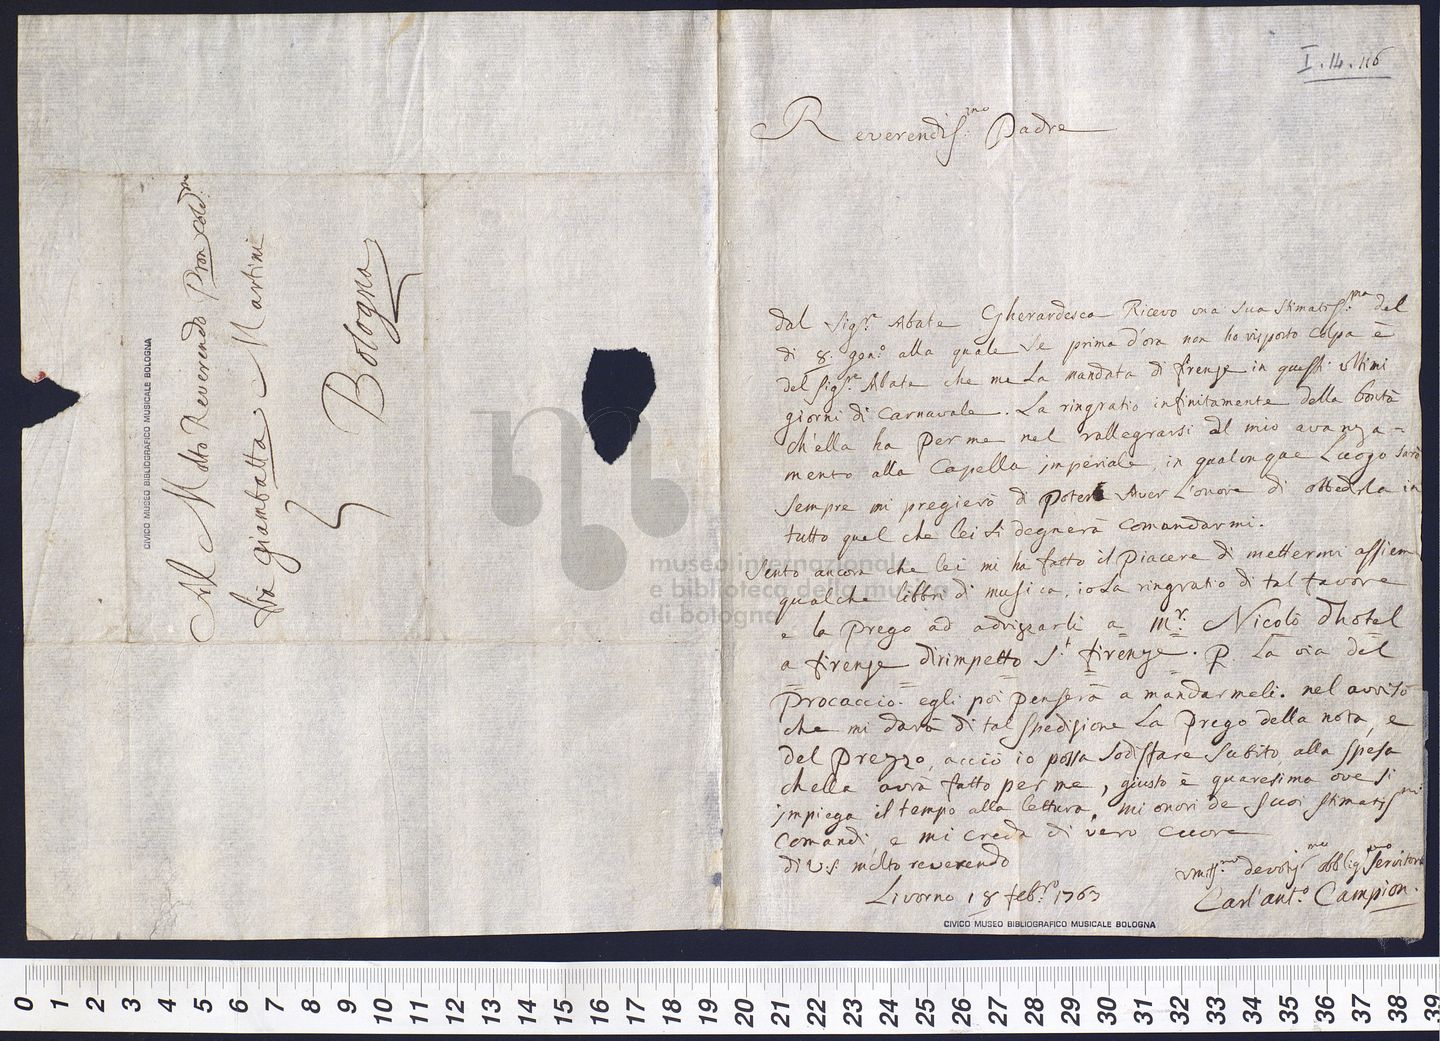 I.14.116
Reverendis.mo Padre
dal Sig.r Abate Gherardesca Ricevo una sua stimatis.ma del
di 8. gen.o alla quale se prima d'ora non ho risposto colpa è
del sig.re Abate che me La mandata di firenze in questi ultimi
giorni di Carnavale. La ringratio infinitamente della bontà
ch'ella ha per me nel rallegrarsi del mio avanza-
mento alla Capella imperiale, in qualunque Luogo sarò
sempre mi pregierò di poter aver L'onore di obbedirla in
tutto quel che lei si degnerà comandarmi.
Sento ancora che lei mi ha fatto il piacere di mettermi assieme
qualche libbri di musica, io La ringratio di tal favore
e la prego ad adrizzarli a M.r Nicolò dhotel
a firenze dirimpetto S.t firenze. P. La via del
procaccio. egli poi penserà a mandarmeli. nel avviso
che mi darà di tal spedizione La prego della nota, e
del prezzo, acciò io possa sodisfare subito alla spesa
chella avrà fatto per me, giusto è quaresima ove si
impiega il tempo alla lettura, mi onori de suoi stimatis.mi
Comandi, e mi creda di vero cuore
di V.S. molto reverendo
Livorno 18 feb.ro 1763
umiss.mo devotis.mo obblig.mo servitore
Carl'ant.o Campion.
CIVICO MUSEO BIBLIOGRAFICO MUSICALE BOLOGNA
Al Molto Reverendo Pron Cold.mo
fra giambatta Martini
Bologna
CIVICO MUSEO BIBLIOGRAFICO MUSICALE BOLOGNA
museo internazionale
e biblioteca della musica
di bologna
0 1 2 3 4 5 6 7 8 9 10 11 12 13 14 15 16 17 18 19 20 21 22 23 24 25 26 27 28 29 30 31 32 33 34 35 36 37 38 39